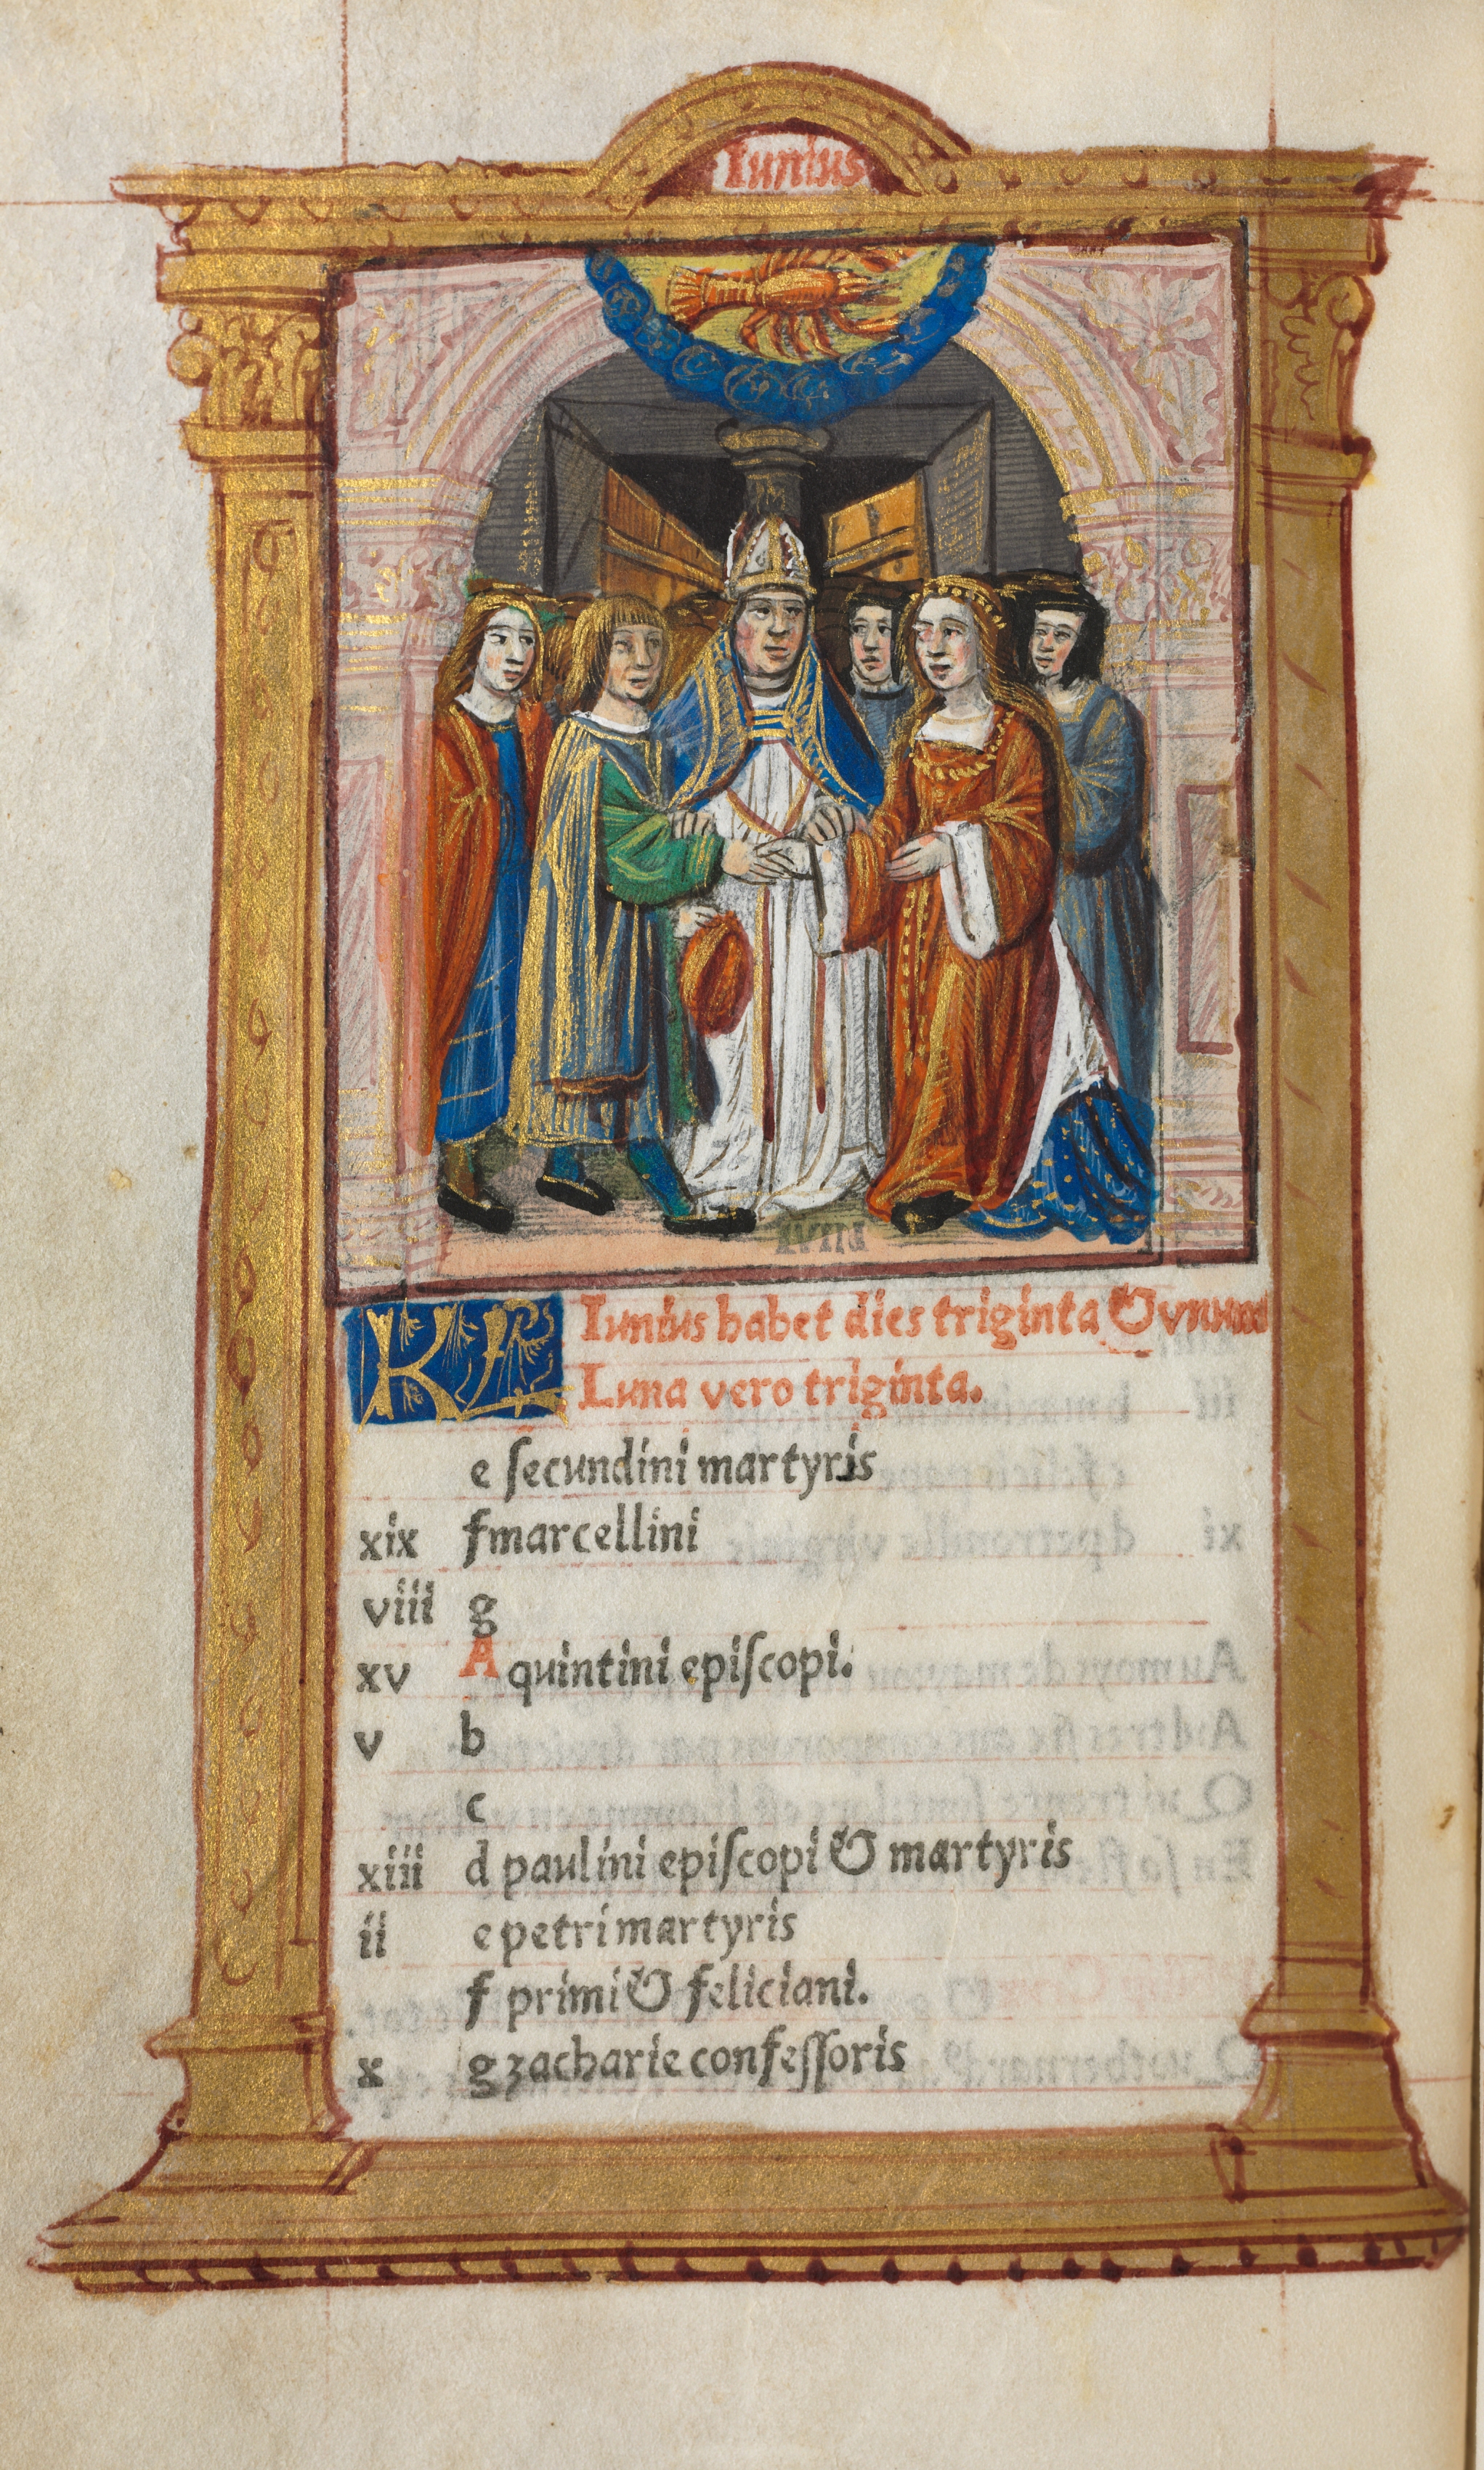 Iunius
KL Iunius habet dies triginta & vnum
Luna vero triginta.
e ſecundini martyris
xix f marcellini
viii g
xv A quintini epiſcopi.
v b
c
xiii d paulini epiſcopi & martyris
ii e petri martyris
f primi & feliciani.
x g zacharie confeſſoris